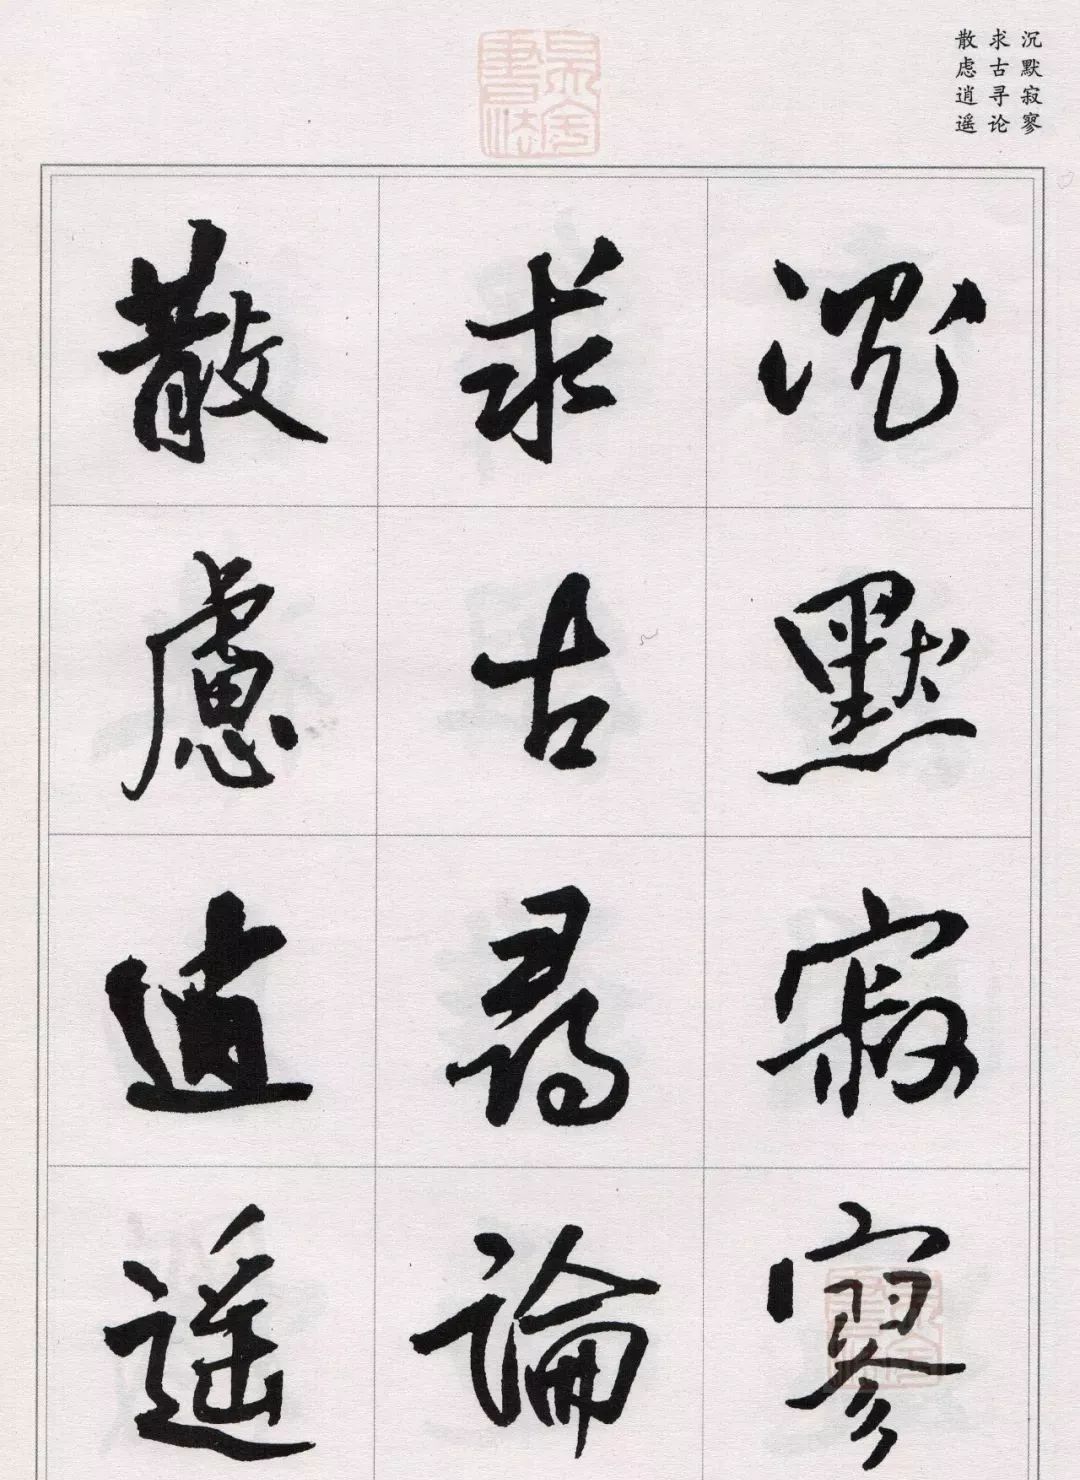 沉默寂寥
求古寻论
散虑逍遥
沉默寂寥
求古尋論
散慮逍遥